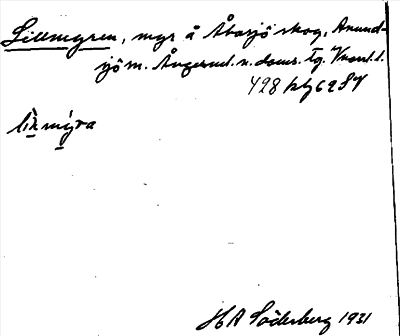 Lillmyren, myr å Åbosjö skog, Anund-
sjö sn. Ångerml. n. doms. Tg. Vnorrl. l.
428 hbg 62 SV
lìlmýra
H A Söderberg 1931